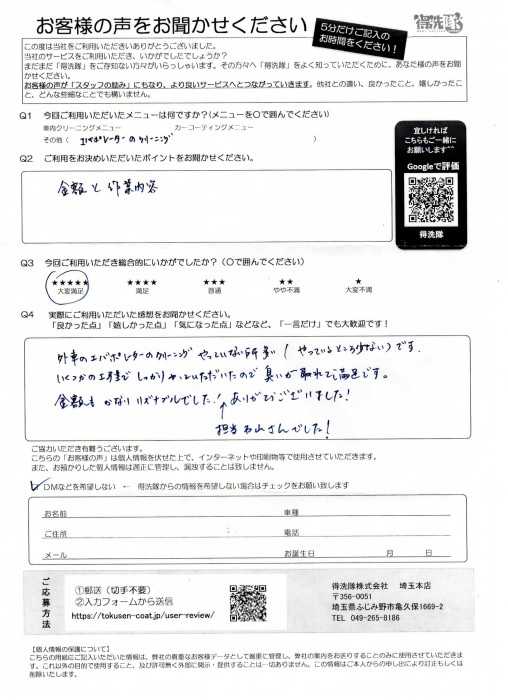 お客様の声をお聞かせください
5分だけご記入の
お時間をください！
得洗隊
この度は当社をご利用いただきありがとうございました。
当社のサービスをご利用いただき、いかがでしたでしょうか？
まだまだ「得洗隊」をご存知ない方々がいらっしゃいます。その方々へ「得洗隊」をよく知っていただくために、あなた様の声をお聞かせください。
お客様の声が「スタッフの励み」にもなり、より良いサービスへとつながっていきます。他社との違い、良かったこと、嬉しかったこと、どんな些細なことでも構いません。
Q1 今回ご利用いただいたメニューは何ですか？(メニューを○で囲んでください)
車内クリーニングメニュー カーコーティングメニュー
その他（ エバポレーターのクリーニング ）
宜しければ
こちらもご一緒に
お願いします^^
Googleで評価
得洗隊
Q2 ご利用をお決めいただいたポイントをお聞かせください。
金額と作業内容
Q3 今回ご利用いただき総合的にいかがでしたか？（○で囲んでください）
★★★★★ ★★★★ ★★★ ★★ ★
大変満足 満足 普通 やや不満 大変不満
Q4 実際にご利用いただいた感想をお聞かせください。
「良かった点」「嬉しかった点」「気になった点」などなど、「一言だけ」でも大歓迎です！
外車のエバポレーターのクリーニング やっていない所多い（やっているところ少ない）です。
いくつかの工程で しっかりやっていただいたので 臭いが取れて満足です。
金額も かなりリーズナブルでした！ ありがとうございました！
↑
担当 石山さんでした！
ご協力いただき有難うございます。
こちらの「お客様の声」は個人情報を伏せた上で、インターネットや印刷物等で使用させていただきます。
また、お預かりした個人情報は適正に管理し、漏洩することは致しません。
DMなどを希望しない ← 得洗隊からの情報を希望しない場合はチェックをお願い致します
お名前 車種
ご住所 電話
メール お誕生日 月 日
ご応募方法
①郵送（切手不要）
②入力フォームから送信
https://tokusen-coat.jp/user-review/
得洗隊株式会社 埼玉本店
〒356-0051
埼玉県ふじみ野市亀久保1669-2
TEL 049-265-8186
【個人情報の保護について】
こちらの用紙にご記入いただいた情報は、弊社の貴重なお客様データとして厳重に管理し、弊社の案内をお送りすることのみに使用させていただきます。これ以外の目的で使用すること、及び許可無く外部に開示・提供することは一切ありません。この情報はご本人からの申し出により訂正もしくは削除いたします。